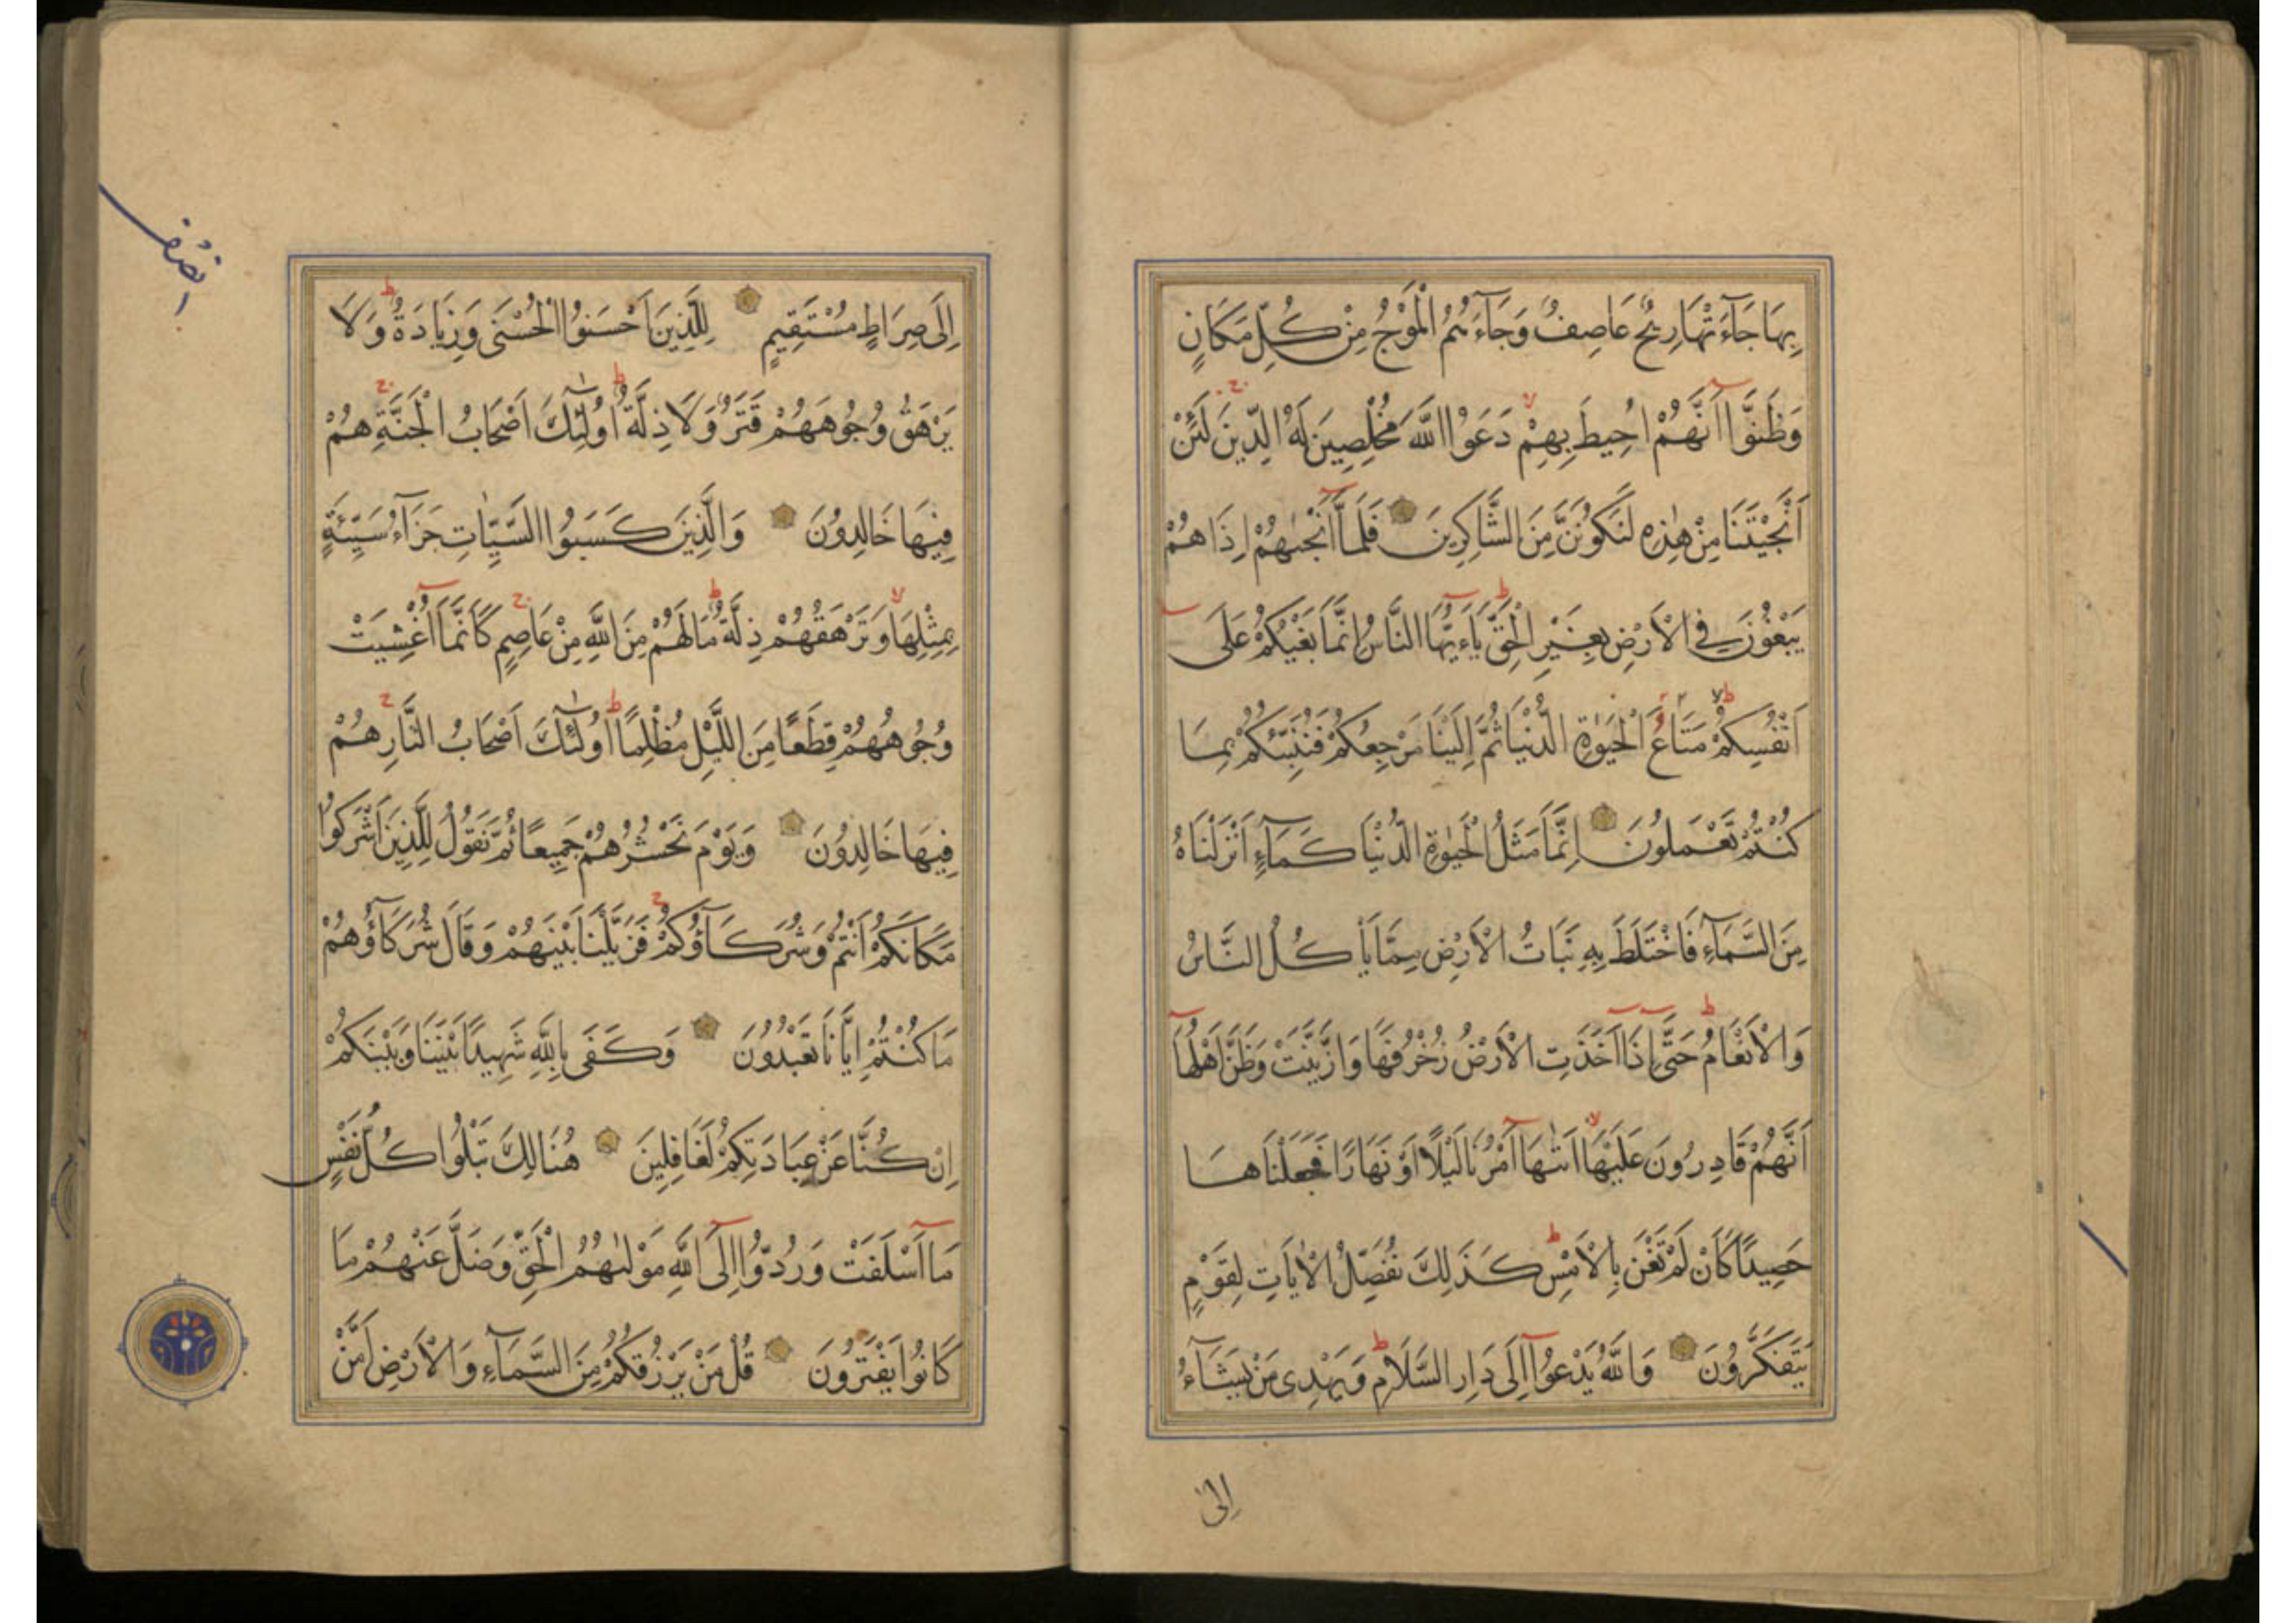 بِهَا جَآءَتْهَا رِيحٌ عَاصِفٌ وَجَآءَهُمُ الْمَوْجُ مِنْ كُلِّ مَكَانٍ
وَظَنُّوٓا اَنَّهُمْ اُحِيطَ بِهِمْ دَعَوُا اللّٰهَ مُخْلِصِينَ لَهُ الدِّينَ لَئِنْ
اَنْجَيْتَنَا مِنْ هٰذِهِ لَنَكُونَنَّ مِنَ الشَّاكِرِينَ فَلَمَّآ اَنْجٰىهُمْ اِذَا هُمْ
يَبْغُونَ فِي الْاَرْضِ بِغَيْرِ الْحَقِّ يَآءَيُّهَا النَّاسُ اِنَّمَا بَغْيُكُمْ عَلَى
اَنْفُسِكُمْ مَتَاعَُ الْحَيٰوةِ الدُّنْيَا ثُمَّ اِلَيْنَا مَرْجِعُكُمْ فَنُنَبِّئُكُمْ بِمَا
كُنْتُمْ تَعْمَلُونَ اِنَّمَا مَثَلُ الْحَيٰوةِ الدُّنْيَا كَمَآءٍ اَنْزَلْنَاهُ
مِنَ السَّمَآءِ فَاخْتَلَطَ بِهِ نَبَاتُ الْاَرْضِ مِمَّا يَاْكُلُ النَّاسُ
وَالْاَنْعَامُ حَتّٰىٓ اِذَآ اَخَذَتِ الْاَرْضُ زُخْرُفَهَا وَازَّيَّنَتْ وَظَنَّ اَهْلُهَآ
اَنَّهُمْ قَادِرُونَ عَلَيْهَآ اَتٰىهَآ اَمْرُنَا لَيْلًا اَوْ نَهَارًا فَجَعَلْنَاهَا
حَصِيدًا كَاَنْ لَمْ تَغْنَ بِالْاَمْسِ كَذٰلِكَ نُفَصِّلُ الْاٰيَاتِ لِقَوْمٍ
يَتَفَكَّرُونَ وَاللّٰهُ يَدْعُوٓا اِلَى دَارِ السَّلَامِ وَيَهْدِى مَنْ يَشَآءُ
اِلىٰ
اِلَى صِرَاطٍ مُسْتَقِيمٍ لِلَّذِينَ اَحْسَنُوا الْحُسْنَى وَزِيَادَةٌ وَلَا
يَرْهَقُ وُجُوهَهُمْ قَتَرٌ وَلَا ذِلَّةٌ اُولٰٓئِكَ اَصْحَابُ الْجَنَّةِ هُمْ
فِيهَا خَالِدُونَ وَالَّذِينَ كَسَبُوا السَّيِّاٰتِ جَزَآءُ سَيِّئَةٍ
بِمِثْلِهَا وَتَرْهَقُهُمْ ذِلَّةٌ مَالَهُمْ مِنَ اللّٰهِ مِنْ عَاصِمٍ كَاَنَّمَآ اُغْشِيَتْ
وُجُوهُهُمْ قِطَعًا مِنَ اللَّيْلِ مُظْلِمًا اُولٰٓئِكَ اَصْحَابُ النَّارِ هُمْ
فِيهَا خَالِدُونَ وَيَوْمَ نَحْشُرُهُمْ جَمِيعًا ثُمَّ نَقُولُ لِلَّذِينَ اَشْرَكُوا
مَكَانَكُمْ اَنْتُمْ وَشُرَكَآؤُكُمْ فَزَيَّلْنَا بَيْنَهُمْ وَقَالَ شُرَكَآؤُهُمْ
مَا كُنْتُمْ اِيَّانَا تَعْبُدُونَ وَكَفَى بِاللّٰهِ شَهِيدًا بَيْنَنَا وَبَيْنَكُمْ
اِنْ كُنَّا عَنْ عِبَادَتِكُمْ لَغَافِلِينَ هُنَالِكَ تَبْلُوا كُلُّ نَفْسٍ
مَآ اَسْلَفَتْ وَرُدُّوٓا اِلَى اللّٰهِ مَوْلٰىهُمُ الْحَقِّ وَضَلَّ عَنْهُمْ مَا
كَانُوا يَفْتَرُونَ قُلْ مَنْ يَرْزُقُكُمْ مِنَ السَّمَآءِ وَالْاَرْضِ اَمَّنْ